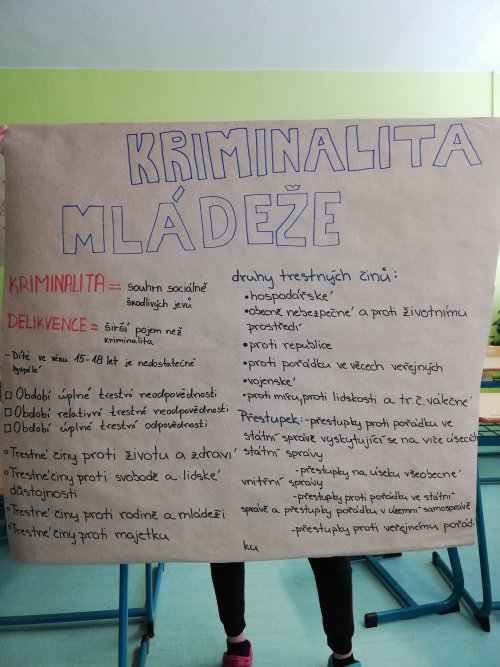 KRIMINALITA
MLÁDEŽE
KRIMINALITA = souhrn sociálně
škodlivých jevů
DELIKVENCE = širší pojem než
kriminalita
- Dítě ve věku 15-18 let je nedostatečně
vyspělé
□ Období úplné trestní neodpovědnosti
□ Období relativní trestné neodpovědnosti
□ Období úplné trestní odpovědnosti
• Trestné činy proti životu a zdraví
• Trestné činy proti svobodě a lidské
důstojnosti
• Trestné činy proti rodině a mládeži
• Trestné činy proti majetku
druhy trestných činů:
• hospodářské
• obecně nebezpečné a proti životnímu
prostředí
• proti republice
• proti pořádku ve věcech veřejných
• vojenské
• proti míru, proti lidskosti a tr.č. válečné
Přestupek: - přestupky proti pořádku ve
státní správě vyskytující se na více úsecích
státní správy
- přestupky na úseku všeobecné
vnitřní správy
- přestupky proti pořádku ve státní
správě a přestupky pořádku v územní samosprávě
- přestupky proti veřejnému pořád-
ku